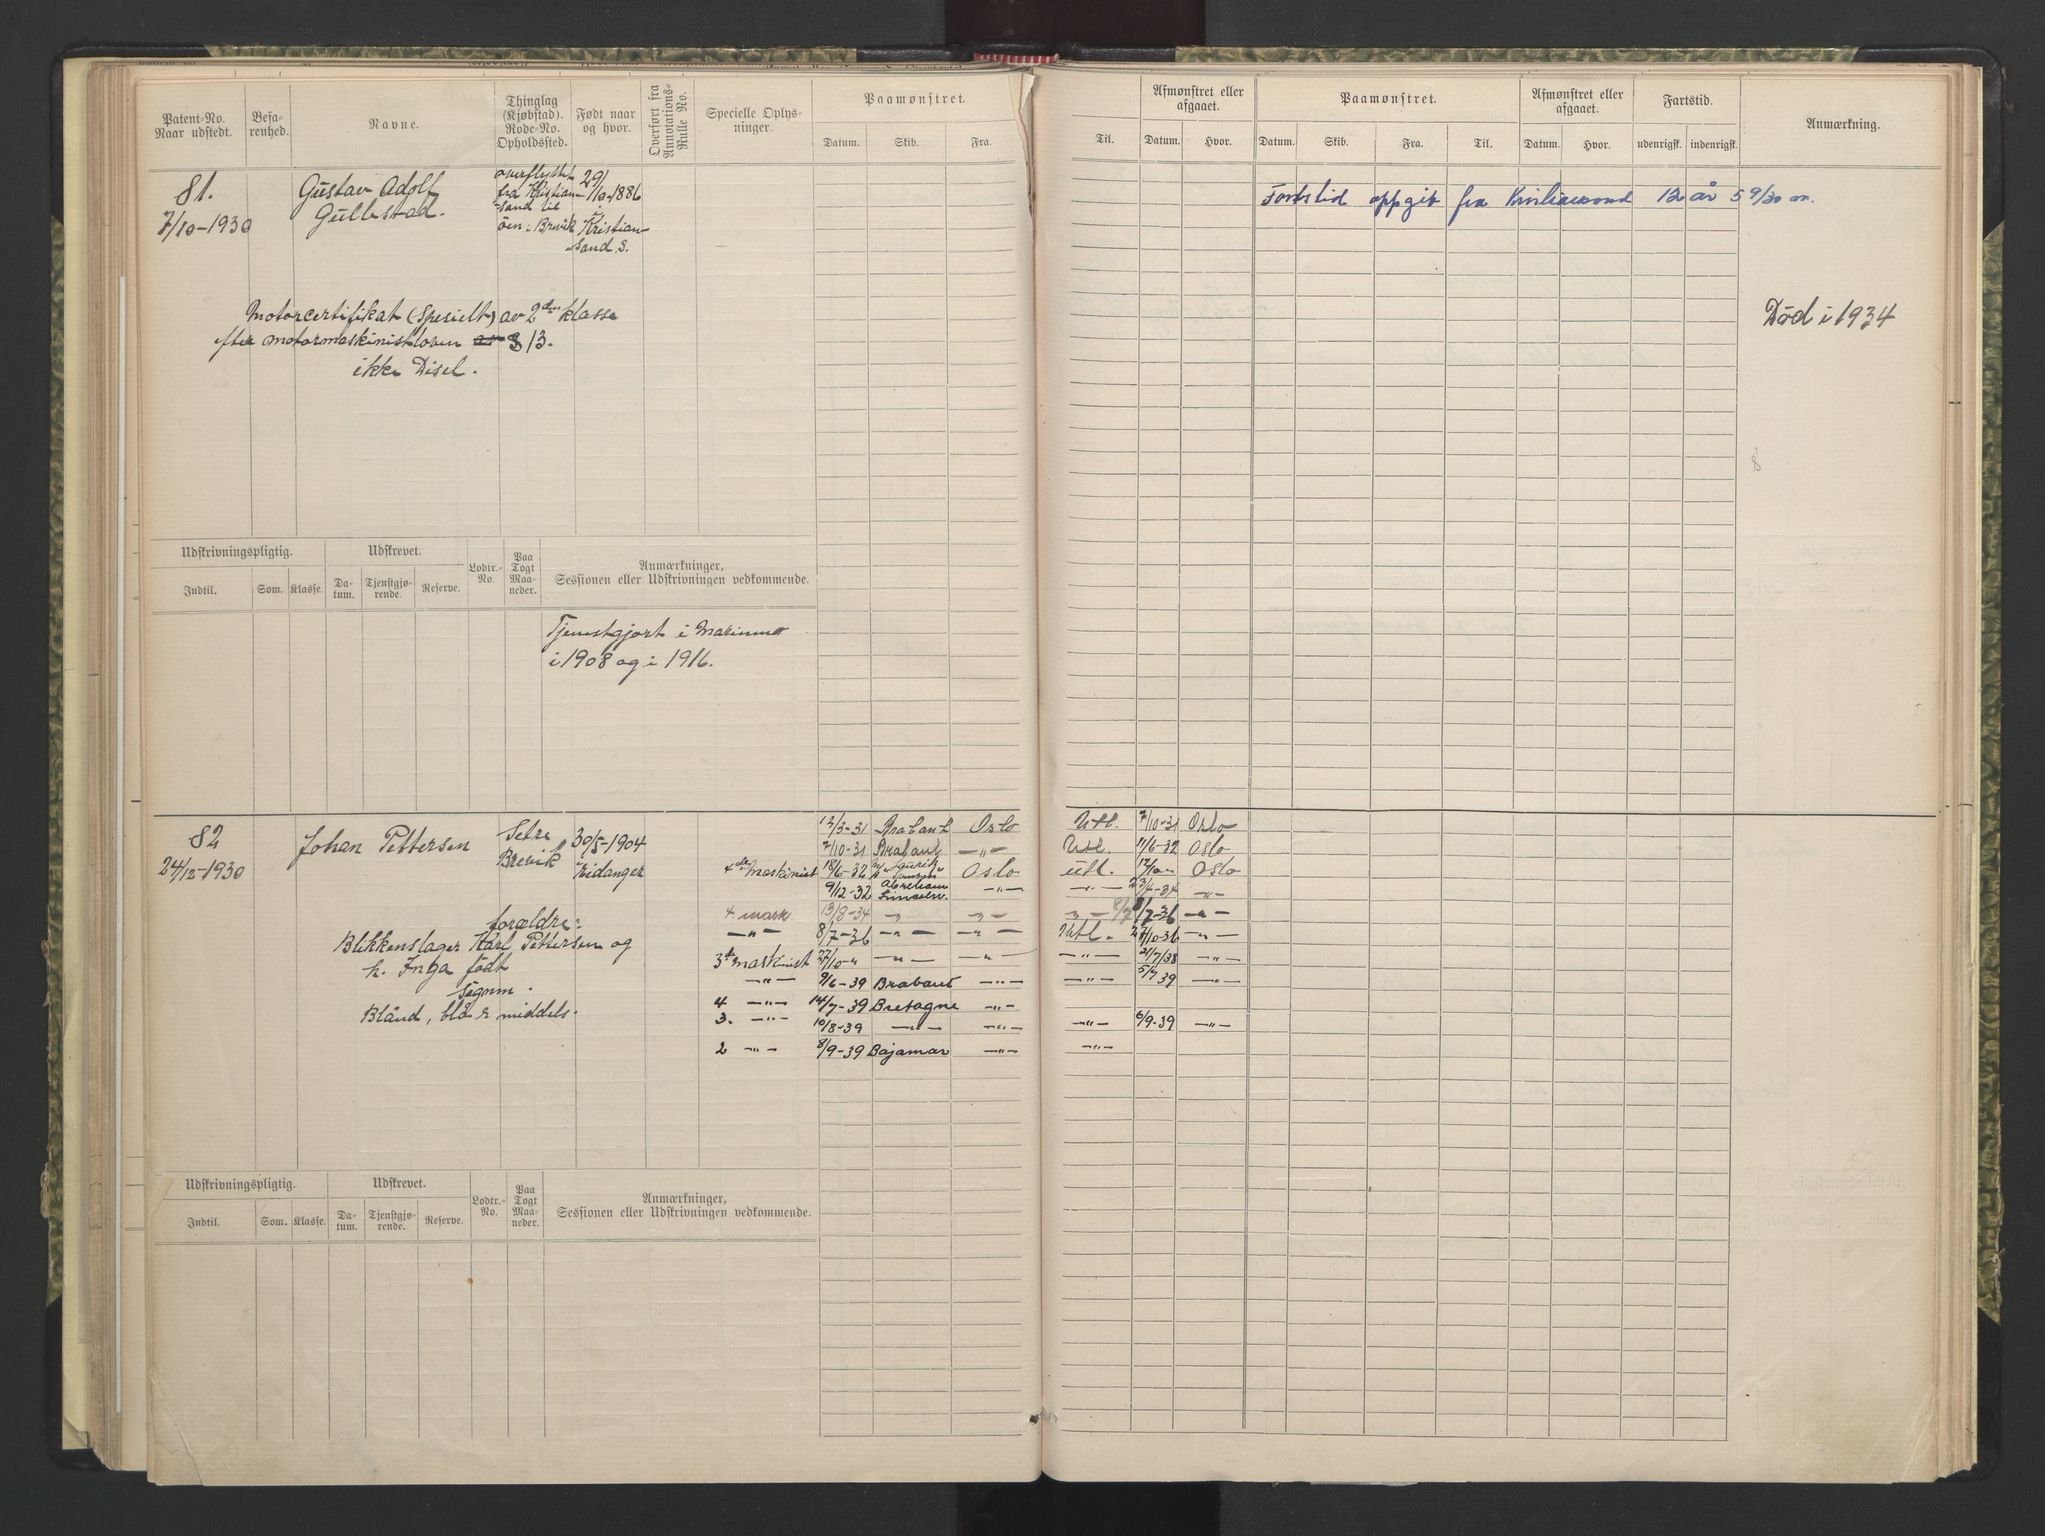 Patent-No.
Naar udstedt.
Befa-
renhed.
Navne.
Thinglag
(Kjøbstad).
Rode-No.
Opholdssted.
Født naar
og hvor.
Overført fra
Annotations-
Rulle No.
Specielle Oplys-
ninger.
Paamønstret.
Datum. Skib. Fra.
Til.
Afmønstret eller
afgaaet.
Datum. Hvor.
Paamønstret.
Datum. Skib. Fra. Til.
Afmønstret eller
afgaaet.
Datum. Hvor.
Fartstid.
udenrigsk. indenrigsk.
Anmærkning.
81.
7/10-1930
Gustav Adolf
Gullestad.
overflyttet
fra Kristian-
sand til
öen i Brevik
29/10-1886
Kristian-
sand S.
Fartstid oppgit fra Kristiansand 12 år 5 9/30 m.
Motorcertifikat (spesielt) av 2den klasse
efter motormaskinistloven § 13.
ikke Disel.
Død i 1934
Udskrivningspligtig. Udskrevet. Lodtr.-
No. Paa
Togt
Maa-
neder. Anmærkninger,
Sessionen eller Udskrivningen vedkommende.
Indtil. Som. Klasse. Da-
tum. Tjenstgjø-
rende. Reserve.
Tjenestgjort i Marinen
i 1908 og i 1916.
82
24/12-1930
Johan Pettersen
Setre
Brevik
30/5-1904
Eidanger
forældre:
Blikkenslager Karl Pettersen og
h. Inga født
Blånd, blå & middels.
12/3-31 Brabant Oslo Utl. 7/10-31 Oslo
7/10-31 Brabant -"- Utl. 11/6-32 Oslo
4de maskinist 18/6-32 Oslo utl. Oslo
9/12-32 Abraham
Lincoln. -"- -"- -"-
4 mask 13/8-34 -"- -"- -"- 8/7-36 -"-
-"- 8/7-36 -"- -"- Utl. 27/10-36 -"-
3de maskinist 27/10-" -"- -"- -"- 21/7/38 -"-
-"- 9/6-39 Brabant -"- -"- 5/7 39 -"-
4 -"- 14/7-39 Bretagne -"-
3. -"- 10/8-39 -"- -"- -"- 6/9-39 -"-
2 -"- 8/9-39 Bajamar -"- -"-
Udskrivningspligtig. Udskrevet. Lodtr.-
No. Paa
Togt
Maa-
neder. Anmærkninger,
Sessionen eller Udskrivningen vedkommende.
Indtil. Som. Klasse. Da-
tum. Tjenstgjø-
rende. Reserve.